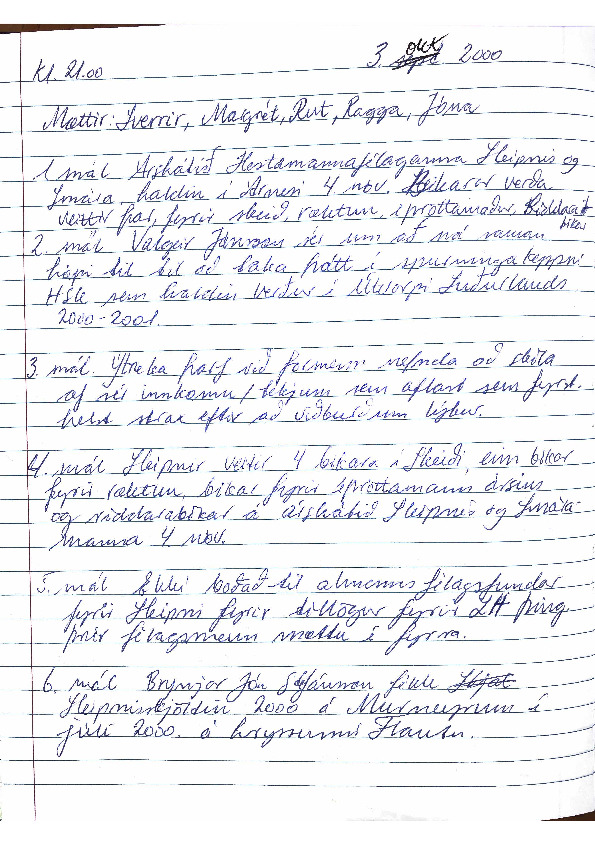 Kl. 21.00
3. okt 2000
Mættir: Sverrir, Magrét, Rut, Ragga, Jóna
1. mál Árshátíð Hestamannafélaganna Sleipnis og
Smára haldin í Árnesi 4 nov. Bikarar verða
veittir þar, fyrir skeið, ræktun, íþróttamaður, Riddara
bikar
2. mál Valgeir Jónsson sér um að ná saman
hópi til til að taka þátt í spurningakeppni
HSK sem haldin verður í Útvarpi Suðurlands
2000-2001.
3. mál. Ytreka þarf við formenn nefnda að skila
af sér innkomu/tekjum sem aflast sem fyrst.
helst strax eftir að viðburðum líkur.
4. mál Sleipner veitir 4 bikara í skeiði, einn bikar
fyrir ræktun, bikar fyrir íþróttamann ársins
og riddarabikar á árshátið Sleipnis og Smára
manna 4 nov.
5. mál Ekki boðað til almenns félagsfundar
fyrir Sleipni fyrir tillögur fyrir LH þing
þrír félagsmenn mættu í fyrra.
6. mál Brynjar Jón Stefánsson fékk
Sleipnisskjöldin 2000 á Murneyrum í
júlí 2000. á hryssunni Flautu.